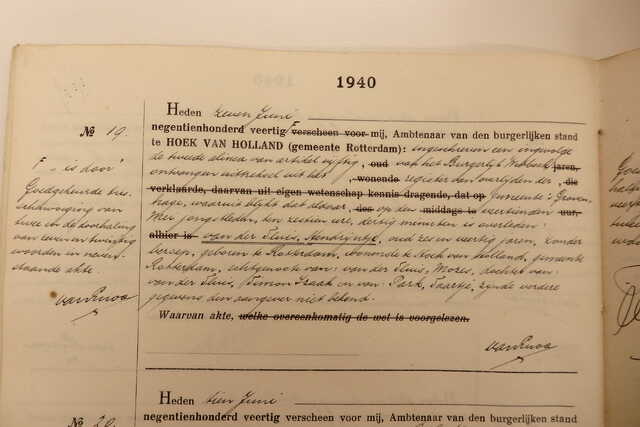 1940
Heden zeven Juni
negentienhonderd veertig F verscheen voor mij, Ambtenaar van den burgerlijken stand
No 19.
te HOEK VAN HOLLAND (gemeente Rotterdam): ingeschreven ingevolge
de tweede alinea van artikel vijftig, oud van het Burgerlijk Wetboek jaren,
ontvangen uittreksel uit het , wonende register van overlijden der , die
verklaarde, daarvan uit eigen wetenschap kennis dragende, dat op gemeente 's Graven-
hage, waaruit blijkt dat aldaar, des op den middags te veertienden uur,
Mei jongstleden, ten zestien ure, dertig minuten is overleden:
alhier is van der Sluis, Hendrijntje, oud zes en veertig jaren, zonder
beroep, geboren te Rotterdam, wonende te Hoek van Holland, gemeente
Rotterdam, echtgenoote van: van der Sluis, Mozes, dochter van:
van der Sluis, Simon Izaak en van Park, Saartje, zijnde verdere
gegevens den aangever niet bekend.
Waarvan akte, welke overeenkomstig de wet is voorgelezen.
F - is door
Goedgekeurde
bijschrijving van
twee en de doorhaling
van zeven en twintig
woorden in neven-
staande akte.
Heden tien Juni
No 20.
negentienhonderd veertig verscheen voor mij, Ambtenaar van den burgerlijken stand